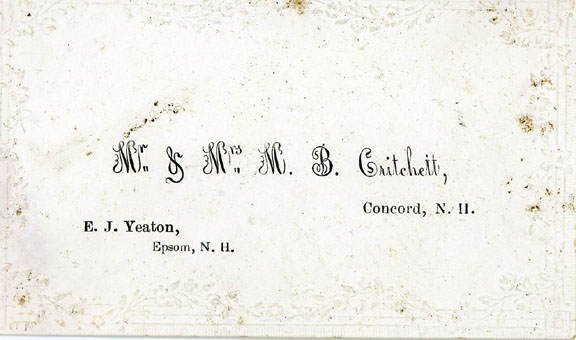 Mr. & Mrs. M. B. Critchett,
Concord, N. H.
E. J. Yeaton,
Epsom, N. H.